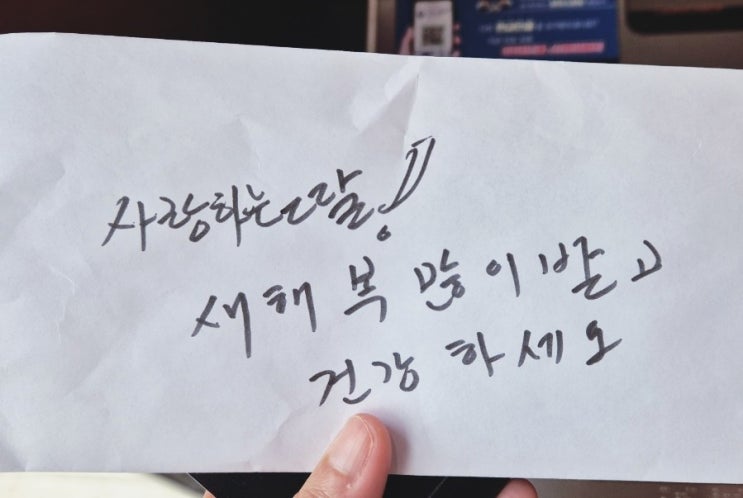 사랑하는 딸!
새해 복 많이 받고
건강 하세요